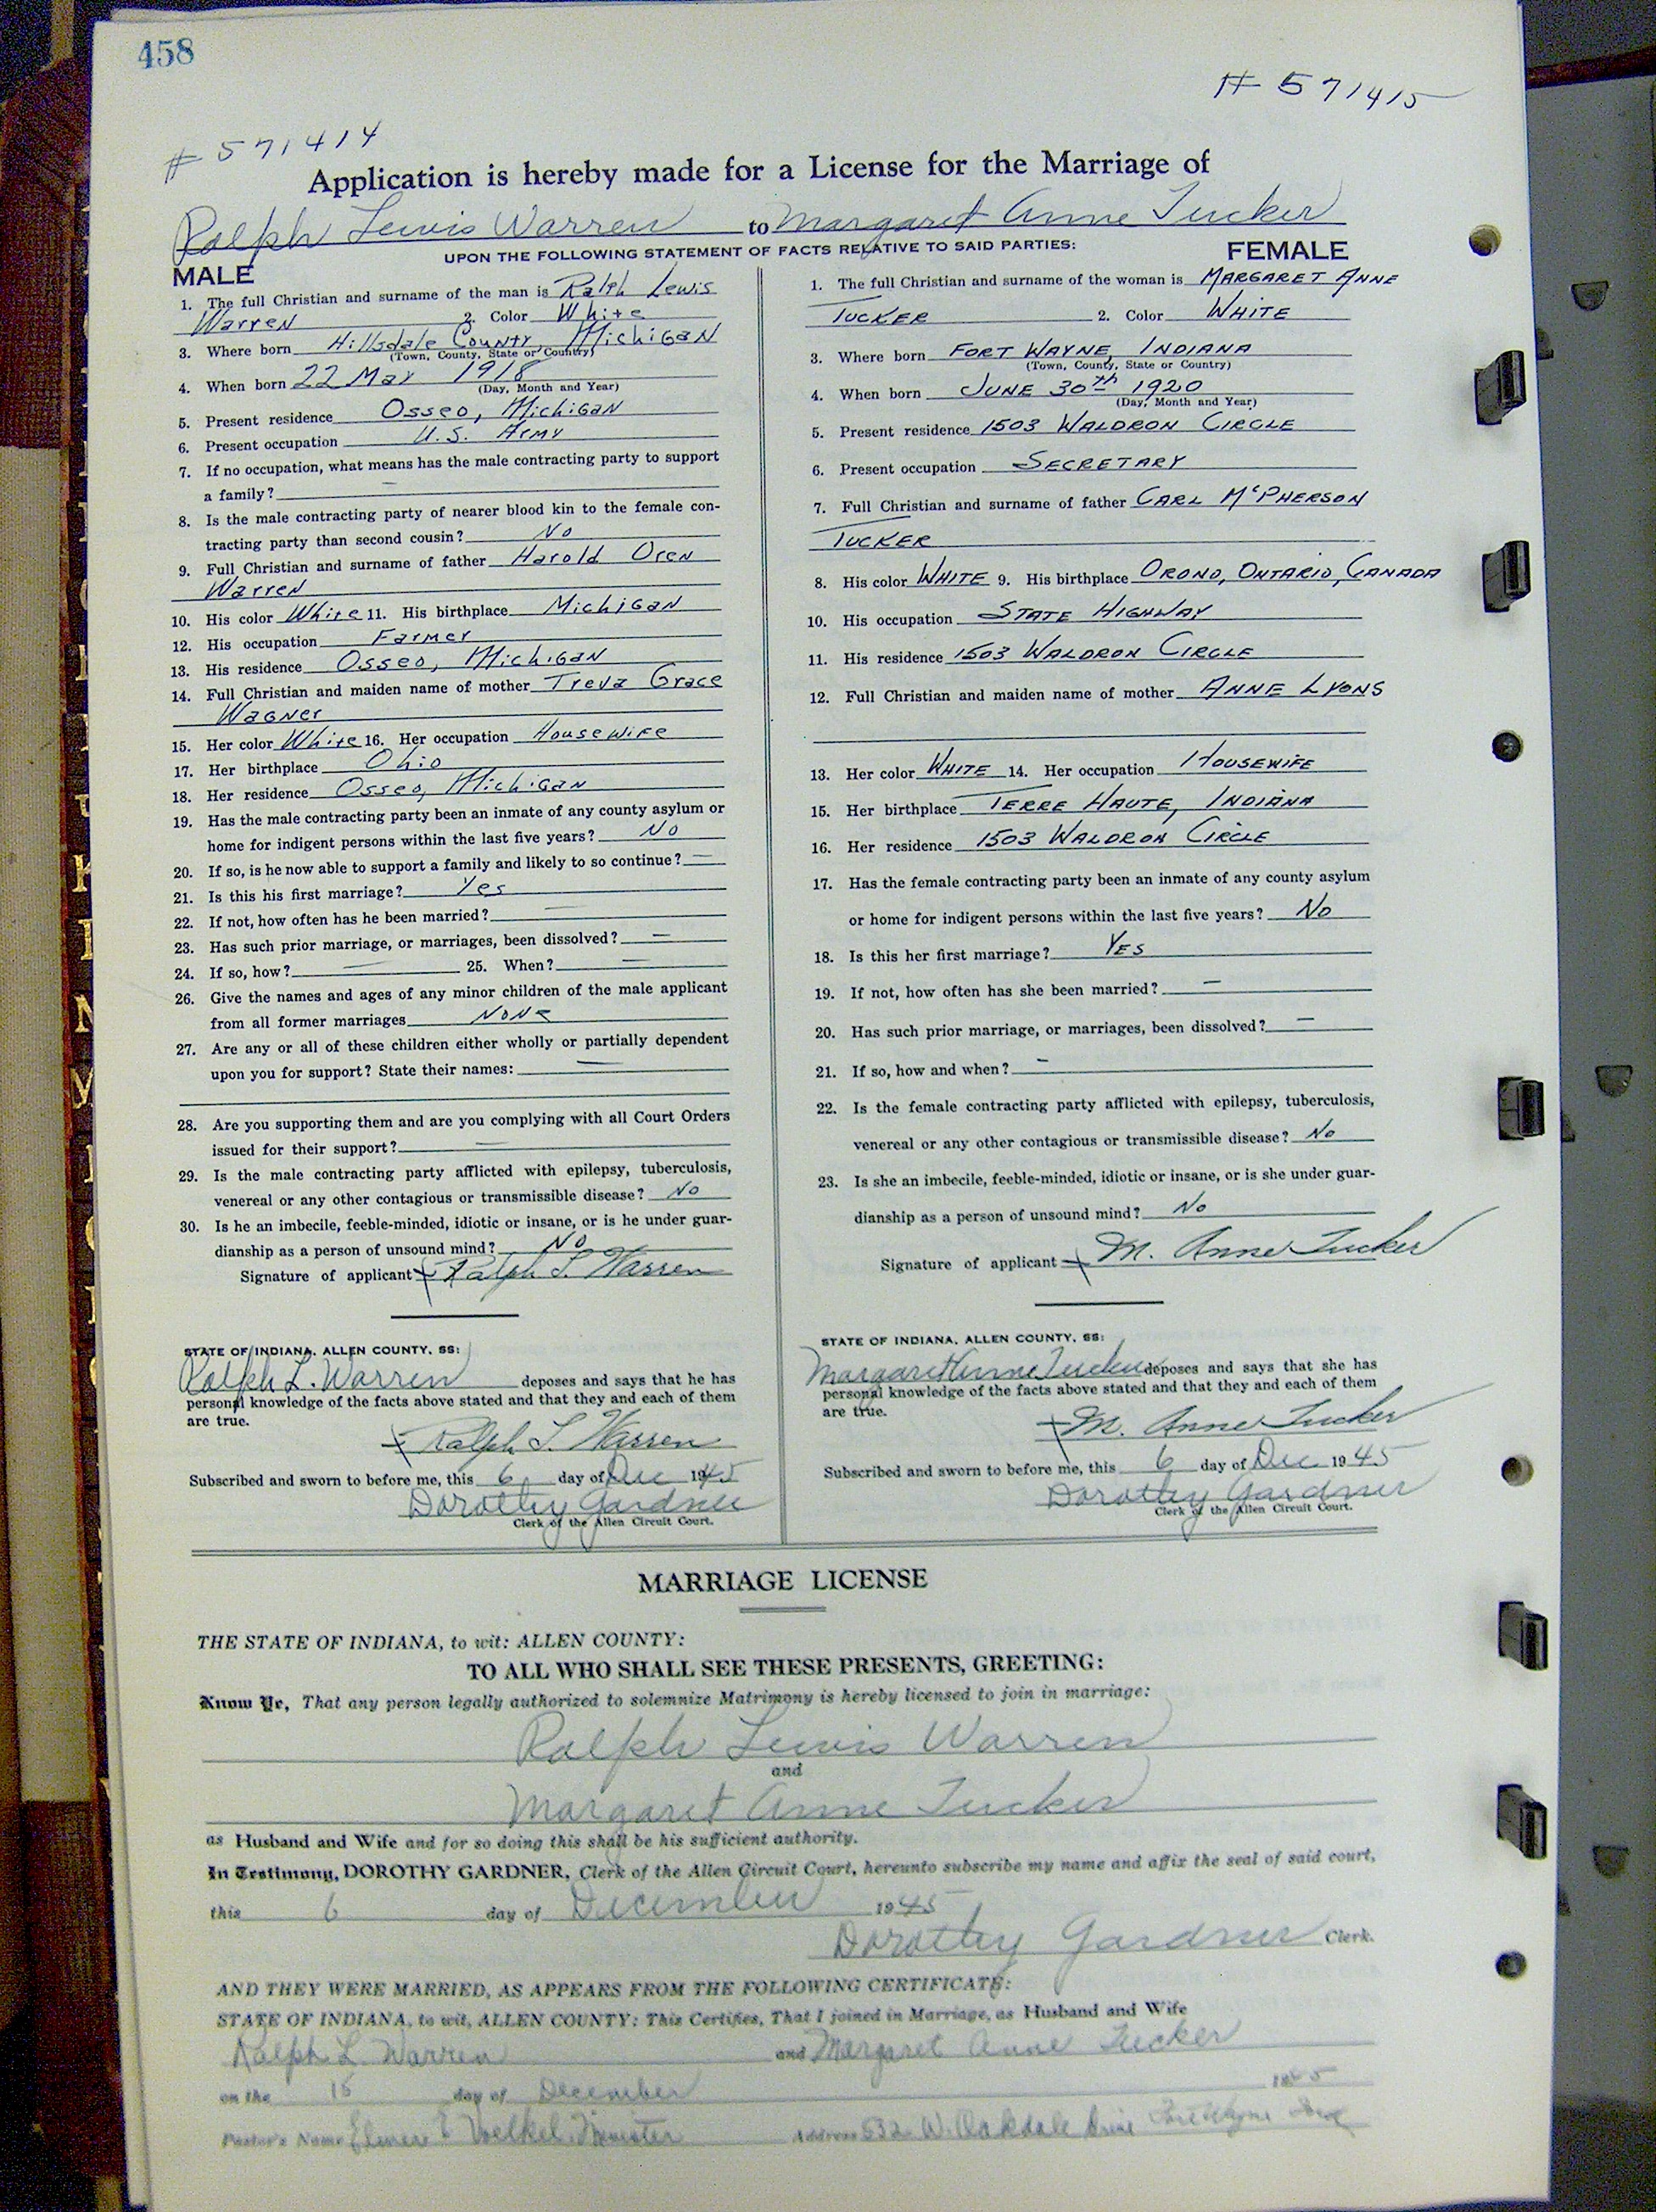 458
# 571415
# 571414
Application is hereby made for a License for the Marriage of
Ralph Lewis Warren to Margaret Anne Tucker
UPON THE FOLLOWING STATEMENT OF FACTS RELATIVE TO SAID PARTIES:
MALE
1. The full Christian and surname of the man is Ralph Lewis
Warren 2. Color White
3. Where born Hillsdale County, Michigan
(Town, County, State or Country)
4. When born 22 May 1918
(Day, Month and Year)
5. Present residence Osseo, Michigan
6. Present occupation U.S. Army
7. If no occupation, what means has the male contracting party to support
a family? -
8. Is the male contracting party of nearer blood kin to the female con-
tracting party than second cousin? No
9. Full Christian and surname of father Harold Oren
Warren
10. His color White 11. His birthplace Michigan
12. His occupation Farmer
13. His residence Osseo, Michigan
14. Full Christian and maiden name of mother Treva Grace
Wagner
15. Her color White 16. Her occupation Housewife
17. Her birthplace Ohio
18. Her residence Osseo, Michigan
19. Has the male contracting party been an inmate of any county asylum or
home for indigent persons within the last five years? No
20. If so, is he now able to support a family and likely to so continue? —
21. Is this his first marriage? Yes
22. If not, how often has he been married? —
23. Has such prior marriage, or marriages, been dissolved? —
24. If so, how? — 25. When? —
26. Give the names and ages of any minor children of the male applicant
from all former marriages None
27. Are any or all of these children either wholly or partially dependent
upon you for support? State their names: —
28. Are you supporting them and are you complying with all Court Orders
issued for their support? —
29. Is the male contracting party afflicted with epilepsy, tuberculosis,
venereal or any other contagious or transmissible disease? No
30. Is he an imbecile, feeble-minded, idiotic or insane, or is he under guar-
dianship as a person of unsound mind? No
Signature of applicant x Ralph L. Warren
STATE OF INDIANA, ALLEN COUNTY, SS:
Ralph L. Warren deposes and says that he has
personal knowledge of the facts above stated and that they and each of them
are true.
x Ralph L. Warren
Subscribed and sworn to before me, this 6 day of Dec 1945
Dorothy Gardner
Clerk of the Allen Circuit Court.
FEMALE
1. The full Christian and surname of the woman is MARGARET ANNE
TUCKER 2. Color WHITE
3. Where born FORT WAYNE, INDIANA
(Town, County, State or Country)
4. When born JUNE 30th 1920
(Day, Month and Year)
5. Present residence 1503 WALDRON CIRCLE
6. Present occupation SECRETARY
7. Full Christian and surname of father CARL McPHERSON
TUCKER
8. His color WHITE 9. His birthplace ORONO, ONTARIO, CANADA
10. His occupation STATE HIGHWAY
11. His residence 1503 WALDRON CIRCLE
12. Full Christian and maiden name of mother ANNE LYONS
13. Her color WHITE 14. Her occupation HOUSEWIFE
15. Her birthplace TERRE HAUTE, INDIANA
16. Her residence 1503 WALDRON CIRCLE
17. Has the female contracting party been an inmate of any county asylum
or home for indigent persons within the last five years? No
18. Is this her first marriage? YES
19. If not, how often has she been married? —
20. Has such prior marriage, or marriages, been dissolved? —
21. If so, how and when? -
22. Is the female contracting party afflicted with epilepsy, tuberculosis,
venereal or any other contagious or transmissible disease? No
23. Is she an imbecile, feeble-minded, idiotic or insane, or is she under guar-
dianship as a person of unsound mind? No
Signature of applicant x M. Anne Tucker
STATE OF INDIANA, ALLEN COUNTY, SS:
Margaret Anne Tucker deposes and says that she has
personal knowledge of the facts above stated and that they and each of them
are true.
x M. Anne Tucker
Subscribed and sworn to before me, this 6 day of Dec 1945
Dorothy Gardner
Clerk of the Allen Circuit Court.
MARRIAGE LICENSE
THE STATE OF INDIANA, to wit: ALLEN COUNTY:
TO ALL WHO SHALL SEE THESE PRESENTS, GREETING:
Know Ye, That any person legally authorized to solemnize Matrimony is hereby licensed to join in marriage:
Ralph Lewis Warren
and
Margaret Anne Tucker
as Husband and Wife and for so doing this shall be his sufficient authority.
In Testimony, DOROTHY GARDNER, Clerk of the Allen Circuit Court, hereunto subscribe my name and affix the seal of said court,
this 6 day of December 1945
Dorothy Gardner Clerk.
AND THEY WERE MARRIED, AS APPEARS FROM THE FOLLOWING CERTIFICATE:
STATE OF INDIANA, to wit, ALLEN COUNTY: This Certifies, That I joined in Marriage, as Husband and Wife
Ralph L. Warren and Margaret Anne Tucker
on the 15 day of December 1945
Pastor's Name Voelkel Minister Address 532 W. Oakdale Drive Fort Wayne Ind